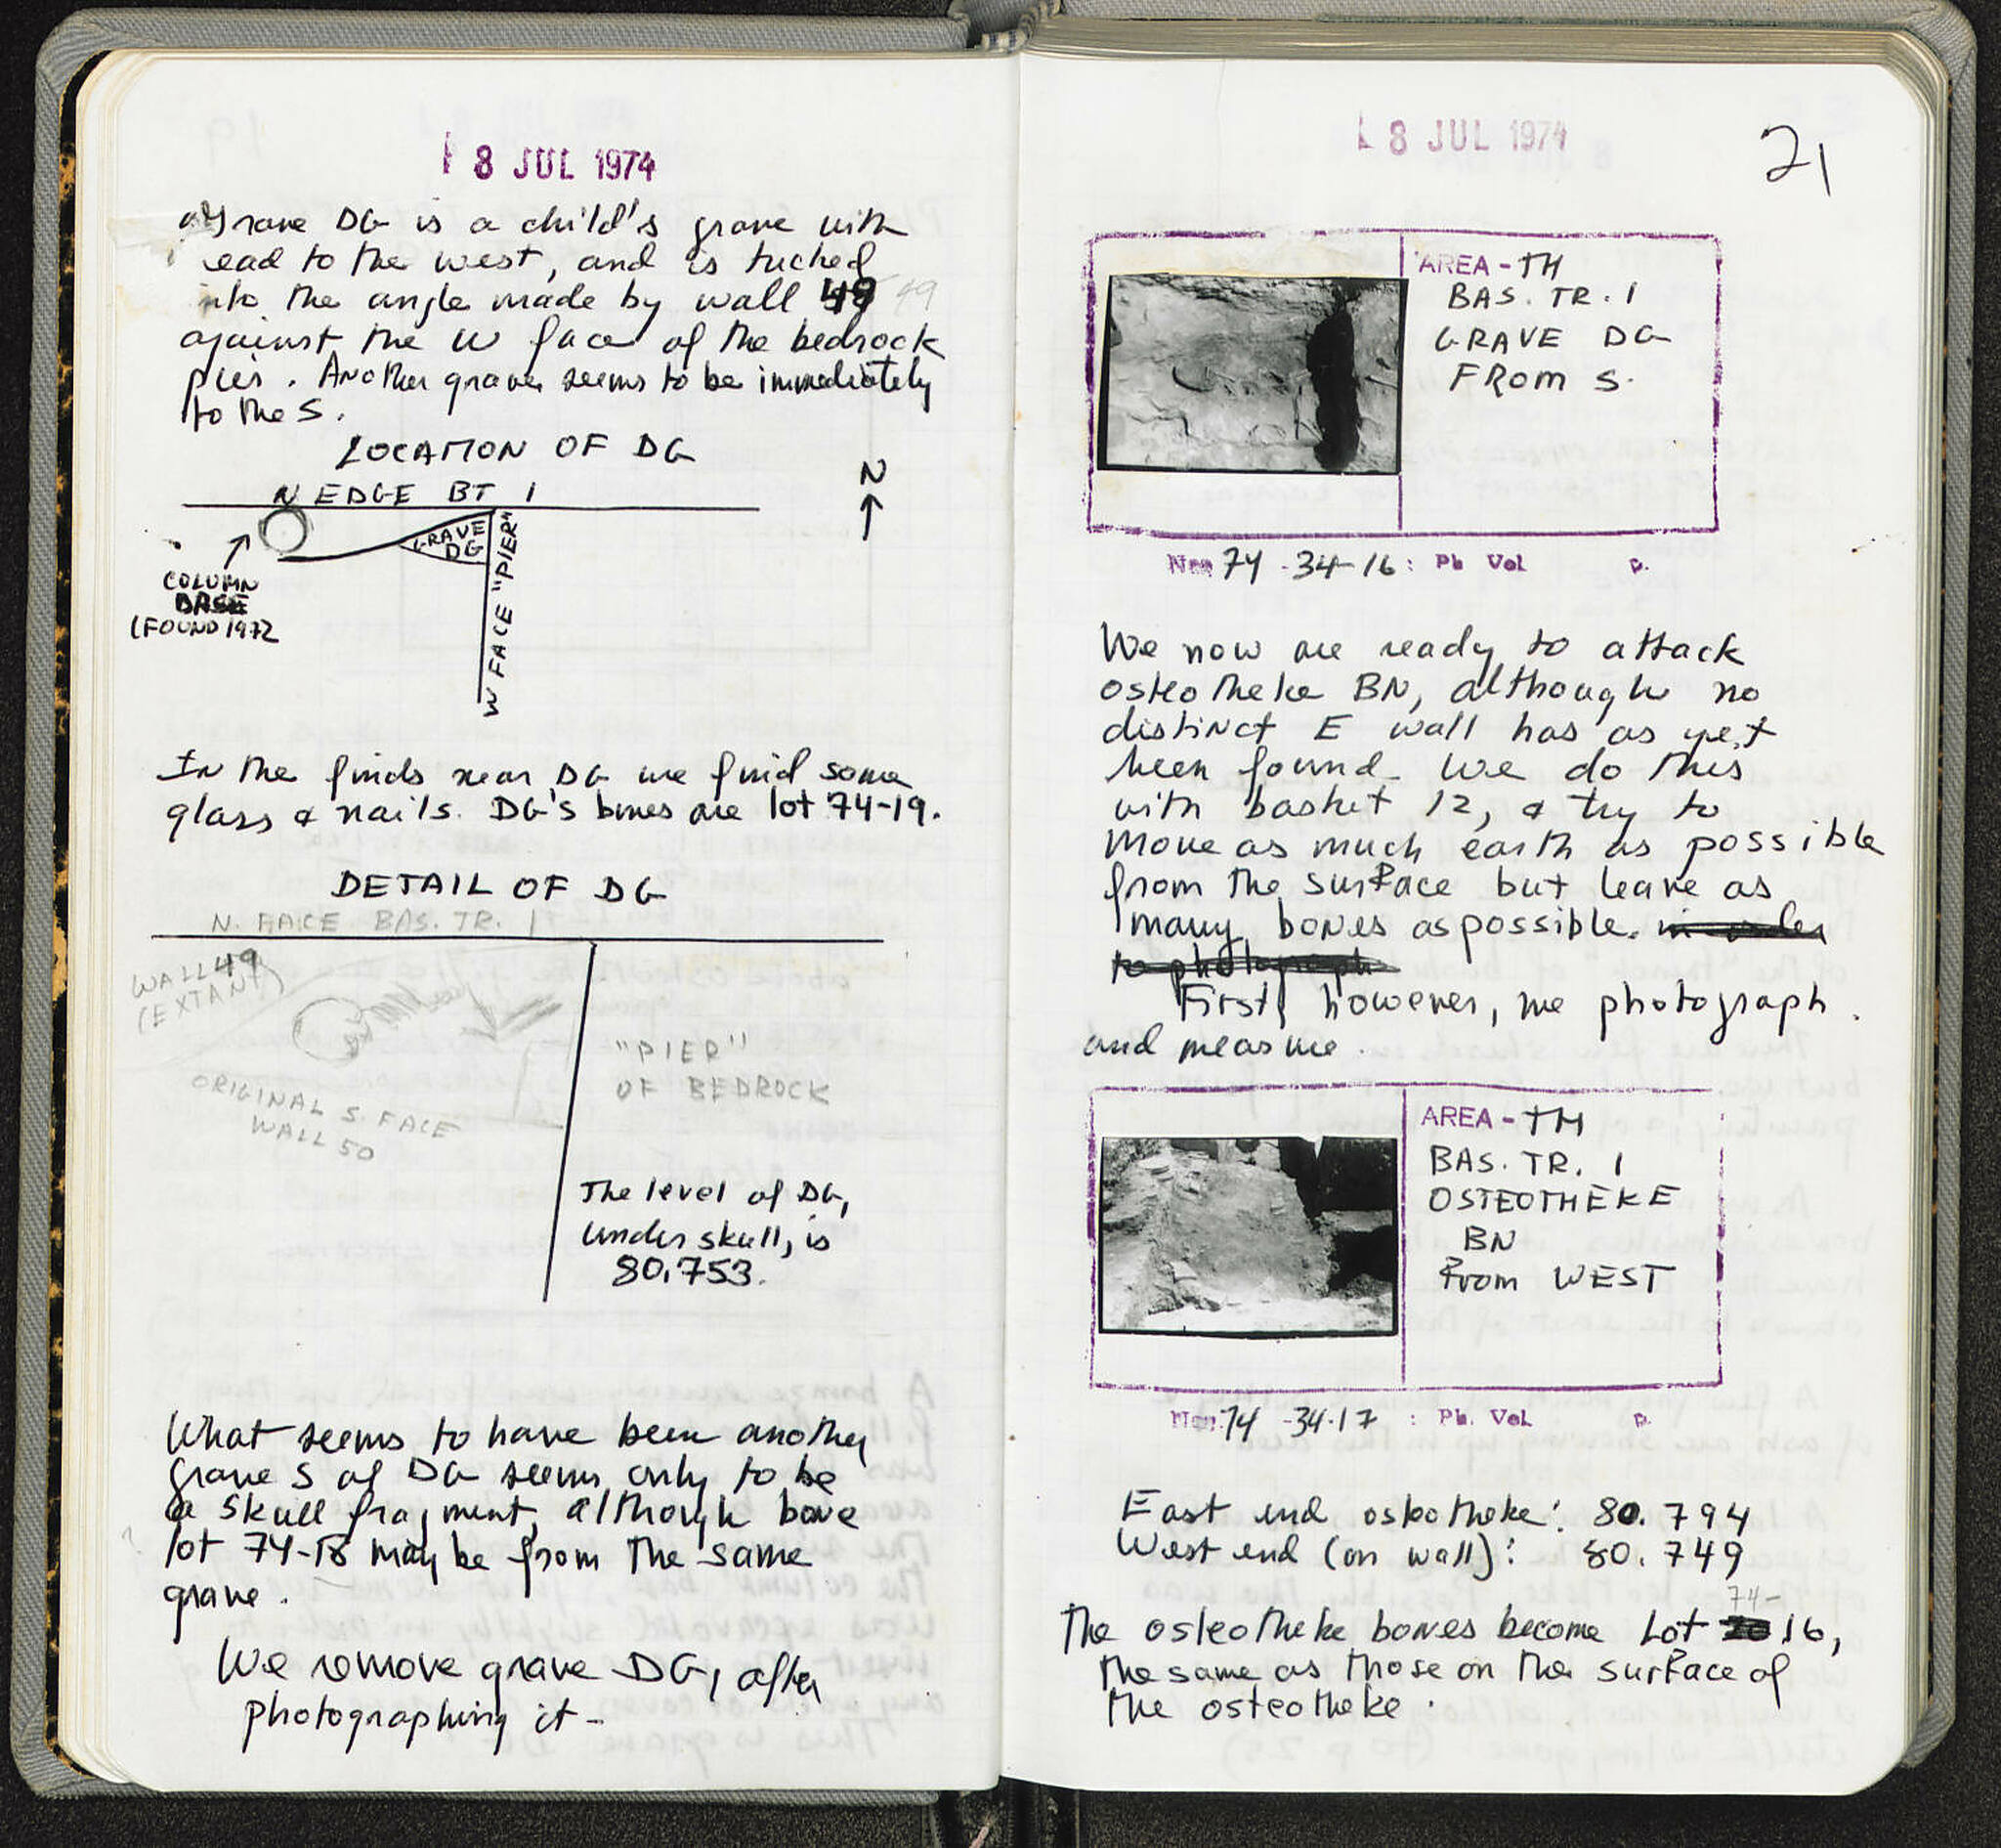 8 JUL 1974
Grave DG is a child's grave with
ead to the west, and is tucked
nto the angle made by wall 49 49
against the W face of the bedrock
pier. Another grave seems to be immediately
to the S.
LOCATION OF DG
N
N EDGE BT 1
GRAVE
DG
W FACE "PIER"
COLUMN
BASE
(FOUND 1972
In the finds near DG we find some
glass & nails. DG's bones are lot 74-19.
DETAIL OF DG
N. FACE BAS. TR. 1
WALL 49
(EXTANT)
"PIER"
OF BEDROCK
ORIGINAL S. FACE
WALL 50
The level of DG,
under skull, is
80.753.
What seems to have been another
grave S of DG seems only to be
a skull fragment, although bone
lot 74-18 may be from the same
grave.
We remove grave DG, after
photographing it -
8 JUL 1974
21
AREA - TH
BAS. TR. 1
GRAVE DG
FROM S.
Neg 74-34-16: Ph Vol p.
We now are ready to attack
osteotheke BN, although no
distinct E wall has as yet
been found. We do this
with basket 12, & try to
move as much earth as possible
from the surface but leave as
many bones as possible. in order
to photograph
First, however, we photograph
and measure.
AREA - TH
BAS. TR. 1
OSTEOTHEKE
BN
From WEST
Neg: 74-34-17: Ph. Vol p.
East end osteotheke: 80.794
West end (on wall): 80.749
74-
The osteotheke bones become Lot 16,
the same as those on the surface of
the osteotheke.